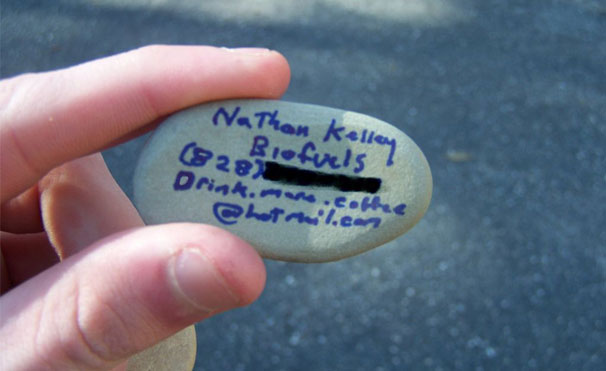 Nathan Kelley
Biofuels
(828)
Drink.more.coffee
@hotmail.com